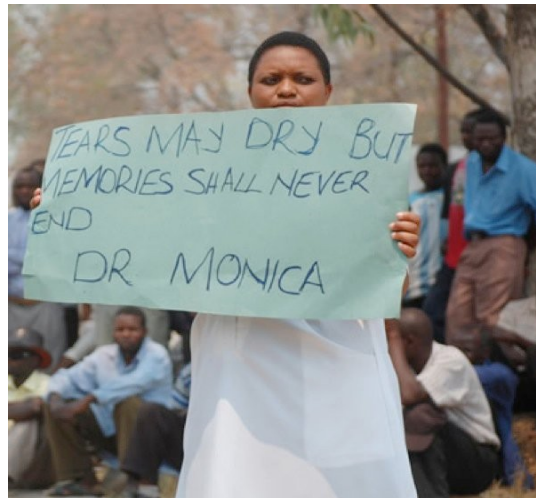 TEARS MAY DRY BUT
MEMORIES SHALL NEVER
END
DR MONICA